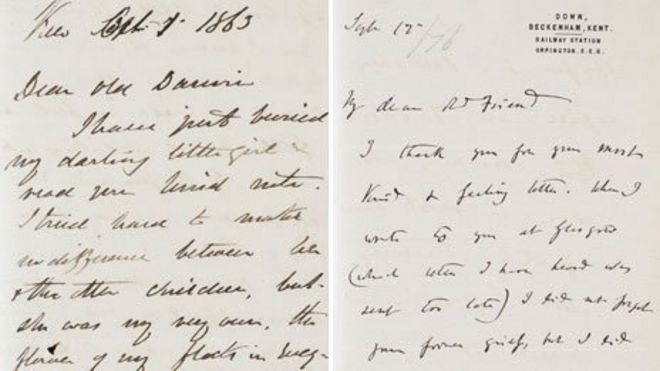 Kew Oct 1 1863
Dear old Darwin
I have just buried
my darling little girl &
read your kind note.
I tried hard to make
no difference between her
& the other children, but
she was my very own, the
flower of my flock in every-
DOWN,
BECKENHAM, KENT.
RAILWAY STATION
ORPINGTON. S.E.R.
Sept 12
/76
My dear old Friend
I thank you for your most
kind & feeling letter. When I
wrote to you at Glasgow
(which letter I have heard was
sent too late) I did not forget
your former grief, but I did